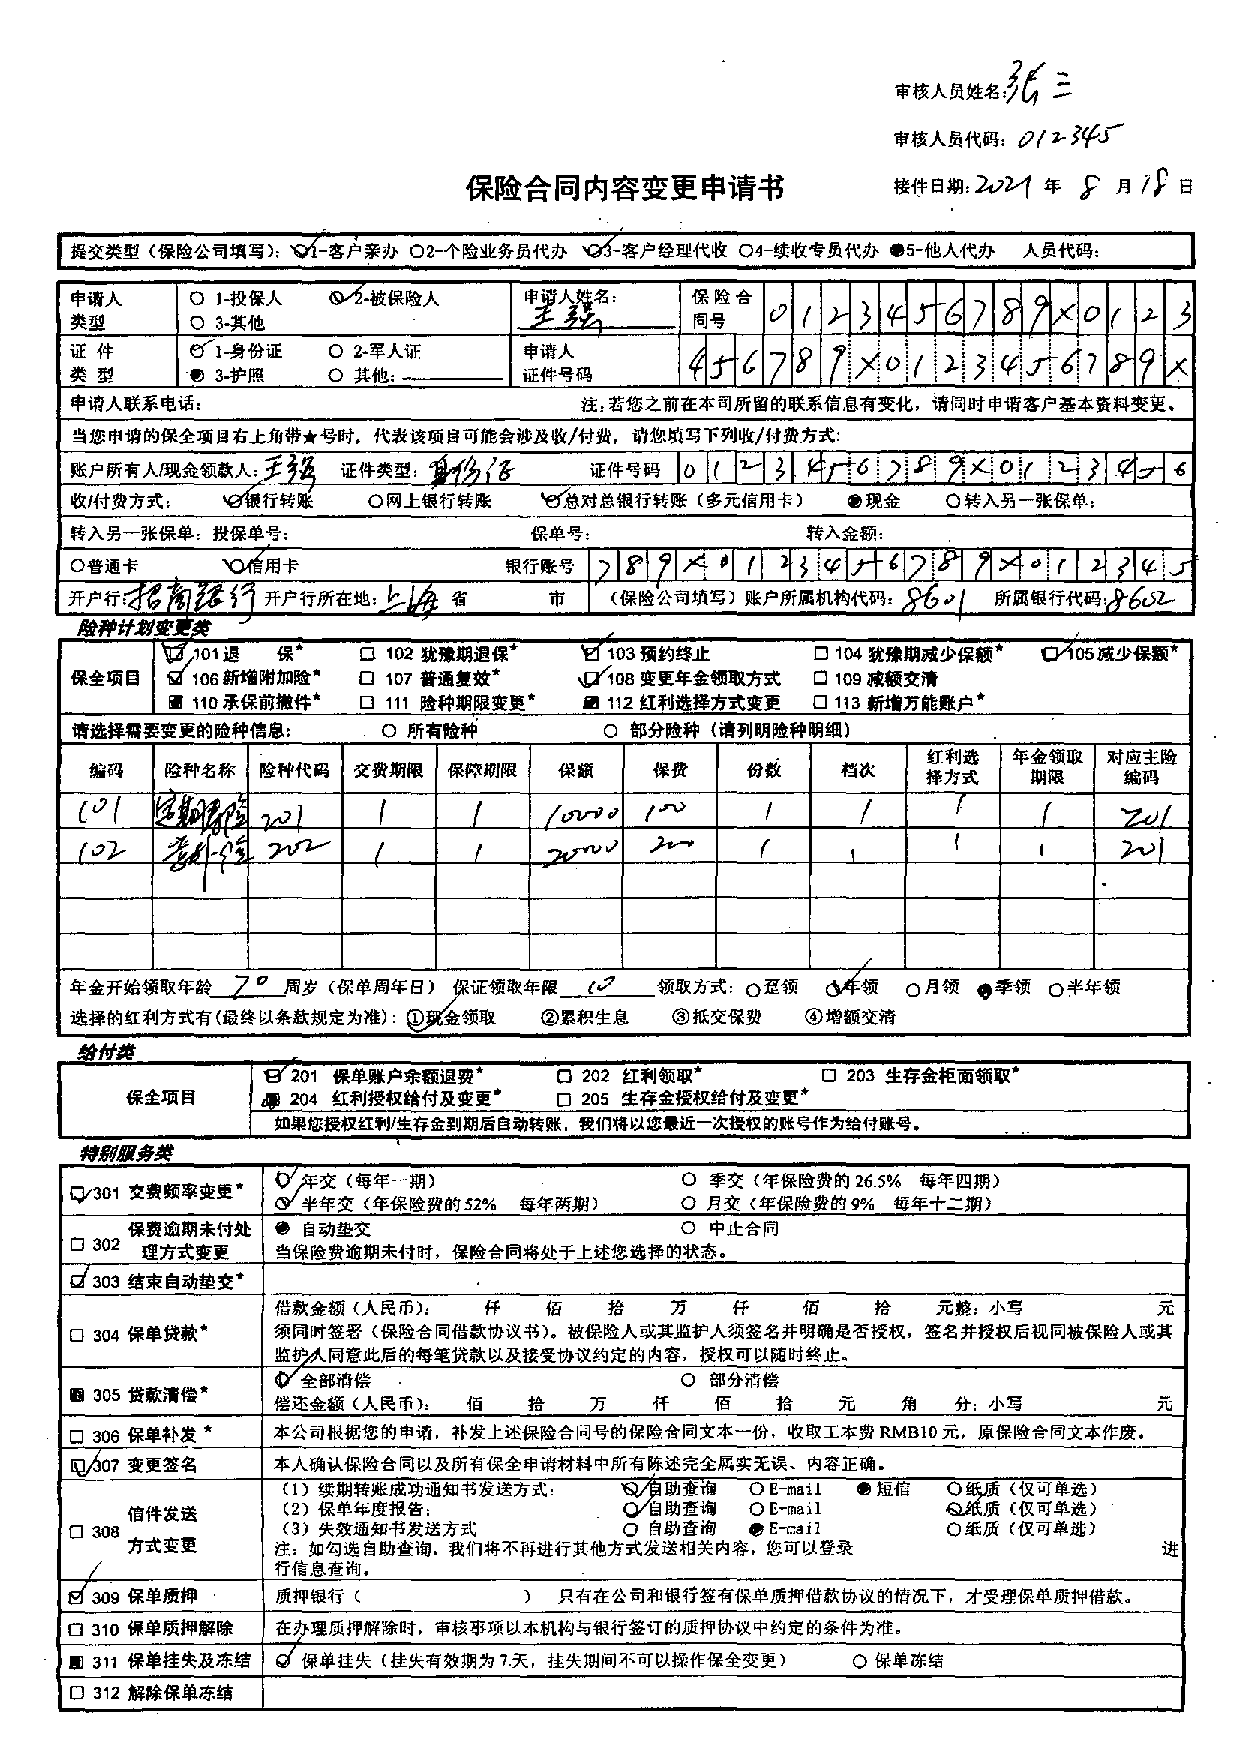 审核人员姓名:张三
审核人员代码: 012345
保险合同内容变更申请书
接件日期:2021年8月18日
提交类型（保险公司填写）: 1-客户亲办 2-个险业务员代办 3-客户经理代收 4-续收专员代办 5-他人代办 人员代码:
申请人类型 1-投保人 2-被保险人 3-其他 申请人姓名: 王强 保险合同号 0123456789X0123
证件类型 1-身份证 2-军人证 3-护照 其他: 申请人证件号码 456789X0123456789X
申请人联系电话: 注:若您之前在本司所留的联系信息有变化，请同时申请客户基本资料变更。
当您申请的保全项目右上角带★号时，代表该项目可能会涉及收/付费，请您填写下列收/付费方式:
账户所有人/现金领款人:王强 证件类型:身份证 证件号码 0123456789X0123456
收/付费方式: 银行转账 网上银行转账 总对总银行转账（多元信用卡） 现金 转入另一张保单:
转入另一张保单: 投保单号: 保单号: 转入金额:
普通卡 信用卡 银行账号 789X0123456789X012345
开户行:招商银行 开户行所在地:上海 省 市 （保险公司填写）账户所属机构代码: 8601 所属银行代码:8602
险种计划变更类
保全项目
101退 保★ 102 犹豫期退保★ 103 预约终止 104 犹豫期减少保额★ 105减少保额★
106 新增附加险★ 107 普通复效★ 108 变更年金领取方式 109 减额交清
110 承保前撤件★ 111 险种期限变更★ 112 红利选择方式变更 113 新增万能账户★
请选择需要变更的险种信息: 所有险种 部分险种（请列明险种明细）
编码 险种名称 险种代码 交费期限 保障期限 保额 保费 份数 档次 红利选择方式 年金领取期限 对应主险编码
101 定期寿险 201 1 1 10000 100 1 1 1 1 201
102 意外险 202 1 1 20000 200 1 1 1 1 201
年金开始领取年龄 70 周岁（保单周年日） 保证领取年限 10 领取方式: 趸领 年领 月领 季领 半年领
选择的红利方式有(最终以条款规定为准): ①现金领取 ②累积生息 ③抵交保费 ④增额交清
给付类
保全项目
201 保单账户余额退费★ 202 红利领取★ 203 生存金柜面领取★
204 红利授权给付及变更★ 205 生存金授权给付及变更★
如果您授权红利/生存金到期后自动转账，我们将以您最近一次授权的账号作为给付账号。
特别服务类
301 交费频率变更★ 年交（每年一期） 季交（年保险费的26.5% 每年四期）
半年交（年保险费的52% 每年两期） 月交（年保险费的9% 每年十二期）
302 保费逾期未付处理方式变更 自动垫交 中止合同
当保险费逾期未付时，保险合同将处于上述您选择的状态。
303 结束自动垫交★
304 保单贷款★ 借款金额（人民币）: 仟 佰 拾 万 仟 佰 拾 元整: 小写 元
须同时签署（保险合同借款协议书）。被保险人或其监护人须签名并明确是否授权，签名并授权后视同被保险人或其
监护人同意此后的每笔贷款以及接受协议约定的内容，授权可以随时终止。
305 贷款清偿★ 全部清偿 部分清偿
偿还金额（人民币）: 佰 拾 万 仟 佰 拾 元 角 分: 小写 元
306 保单补发★ 本公司根据您的申请，补发上述保险合同号的保险合同文本一份，收取工本费RMB10元，原保险合同文本作废。
307 变更签名 本人确认保险合同以及所有保全申请材料中所有陈述完全属实无误、内容正确。
308 信件发送方式变更
（1）续期转账成功通知书发送方式: 自助查询 E-mail 短信 纸质（仅可单选）
（2）保单年度报告: 自助查询 E-mail 纸质（仅可单选）
（3）失效通知书发送方式 自助查询 E-mail 纸质（仅可单选）
注: 如勾选自助查询，我们将不再进行其他方式发送相关内容，您可以登录 进
行信息查询。
309 保单质押 质押银行（ ） 只有在公司和银行签有保单质押借款协议的情况下，才受理保单质押借款。
310 保单质押解除 在办理质押解除时，审核事项以本机构与银行签订的质押协议中约定的条件为准。
311 保单挂失及冻结 保单挂失（挂失有效期为7天，挂失期间不可以操作保全变更） 保单冻结
312 解除保单冻结